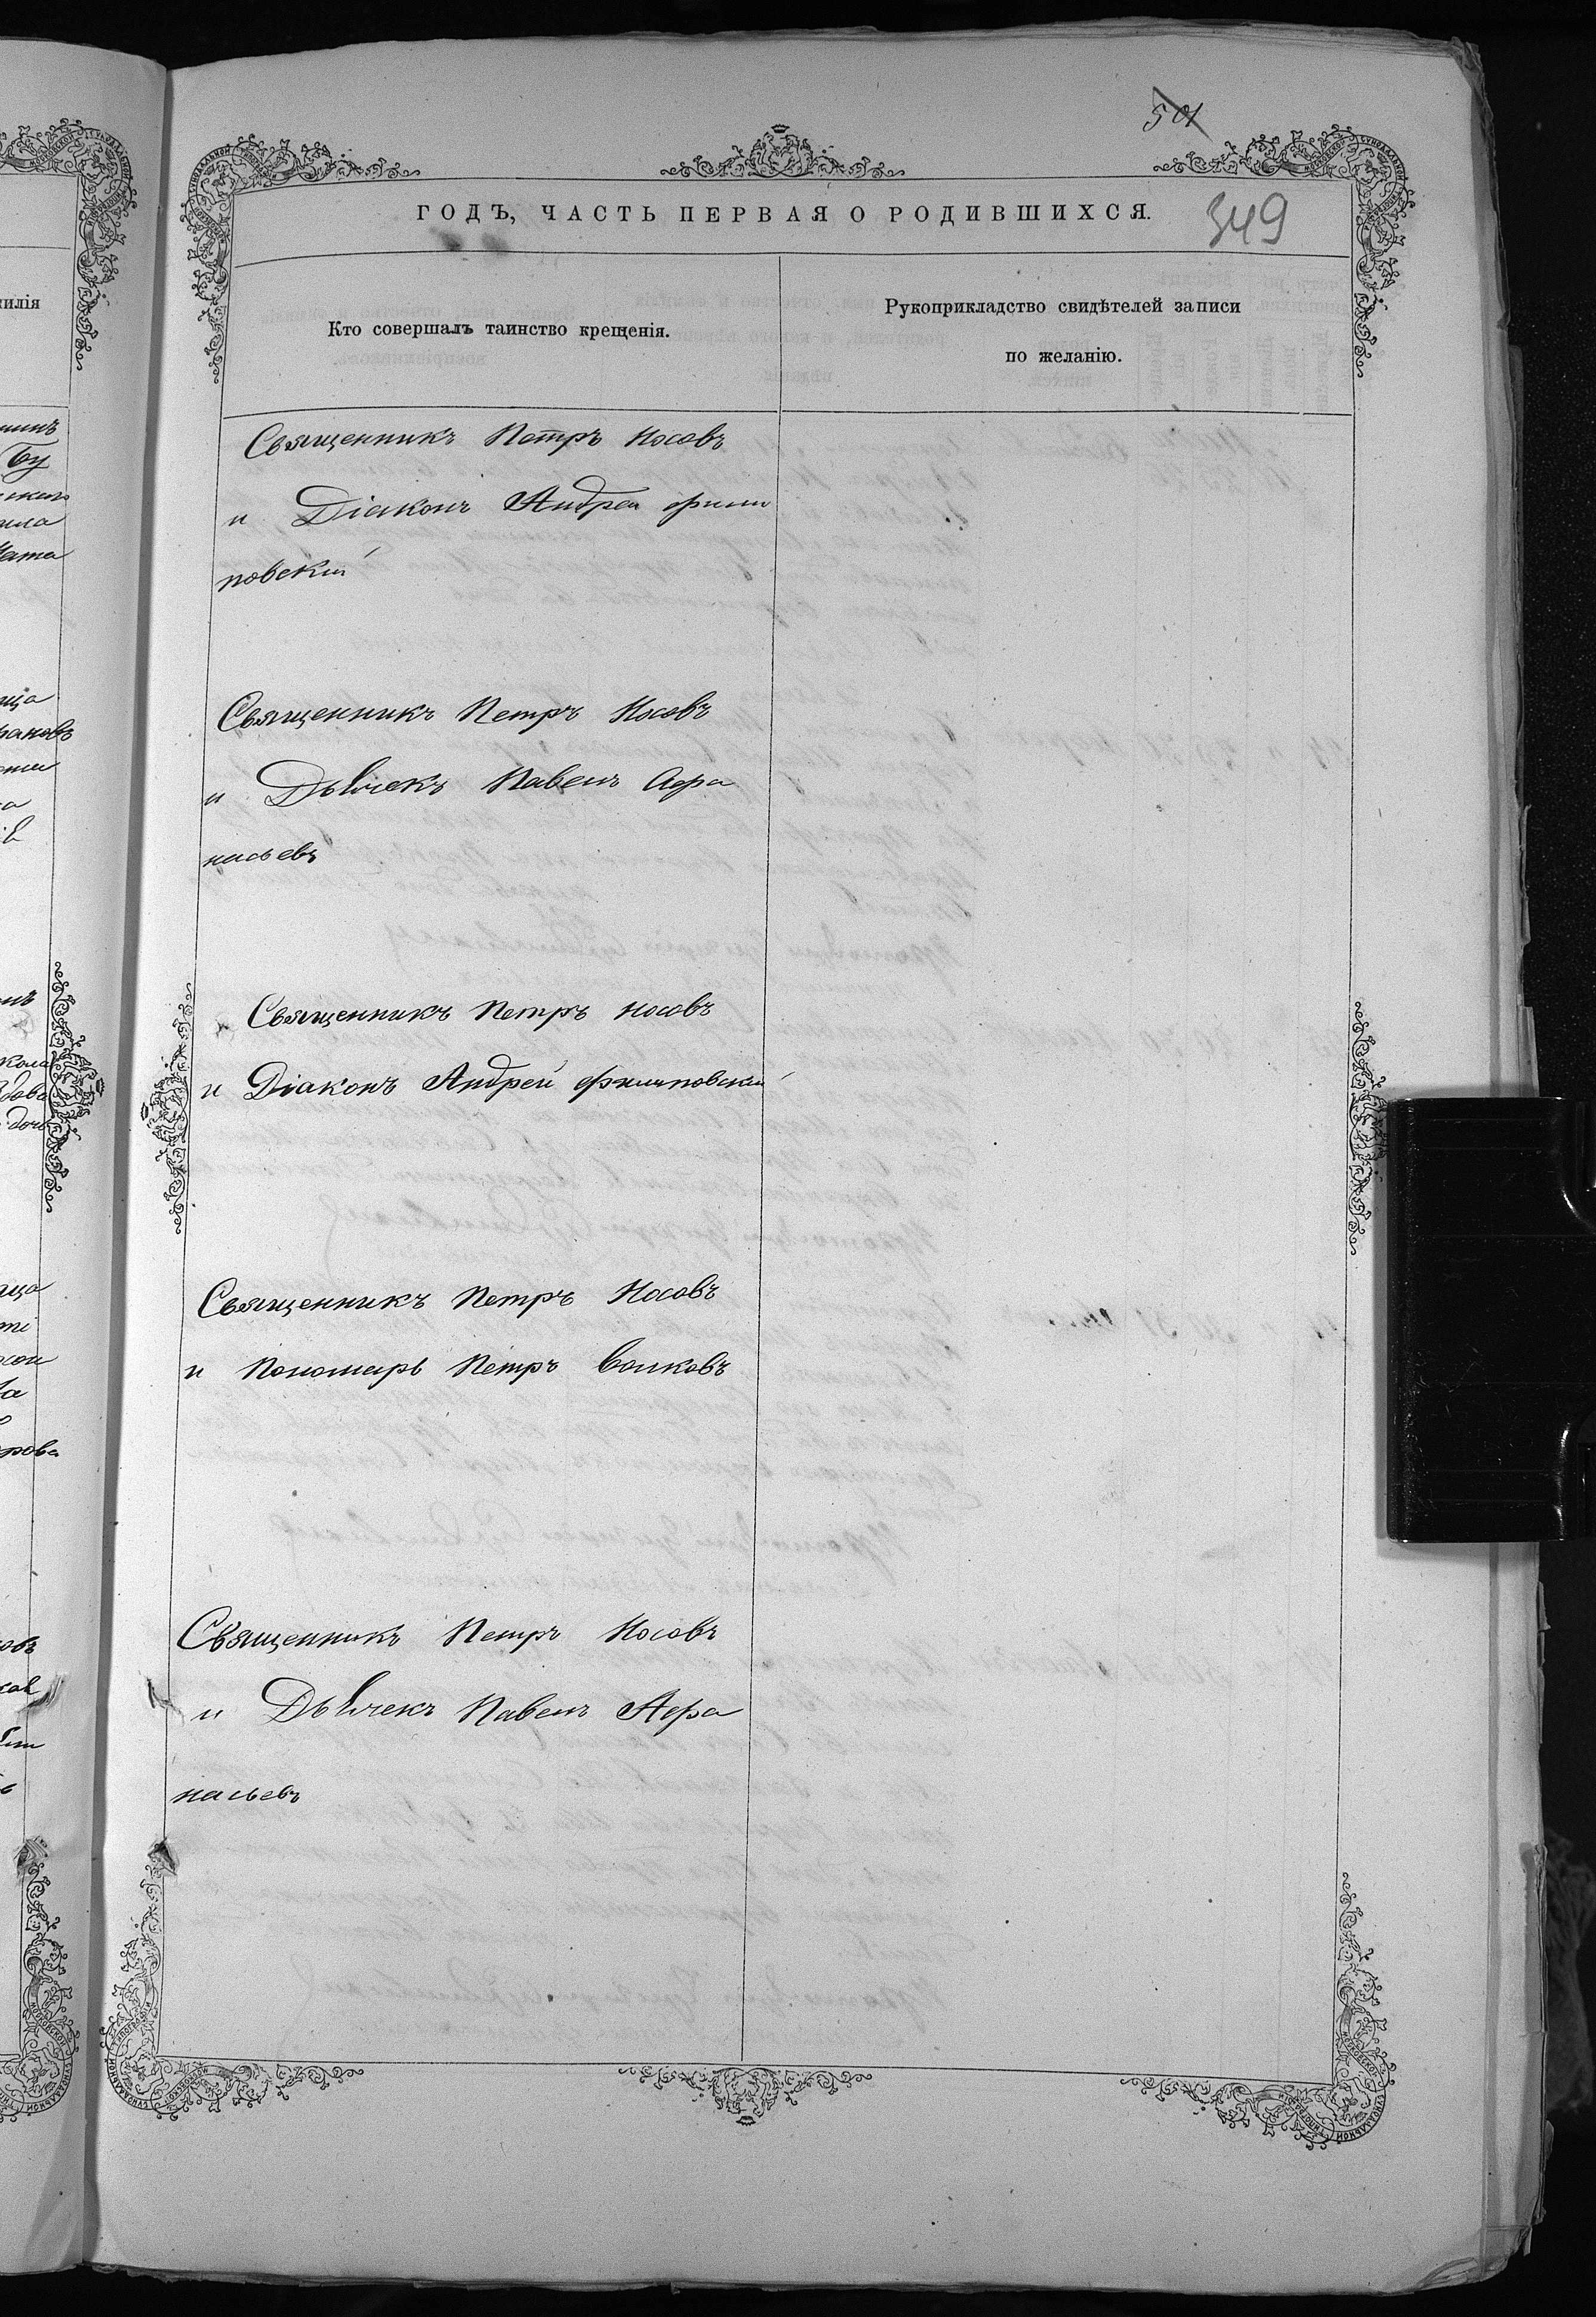 501
ГОДЪ, ЧАСТЬ ПЕРВАЯ О РОДИВШИХСЯ.
349
Кто совершалъ таинство крещенія.
Рукоприкладство свидѣтелей записи
по желанію.
Священникъ Петръ Носовъ
и Діаконъ Андрей Филип
повскій
Священникъ Петръ Носовъ
и Дьячекъ Павелъ Афа
насьевъ
Священникъ Петръ Носовъ
и Діаконъ Андрей Филиповскій
Священникъ Петръ Носовъ
и Пономарь Петръ Волковъ
Священникъ Петръ Носовъ
и Дьячекъ Павелъ Афа
насьевъ